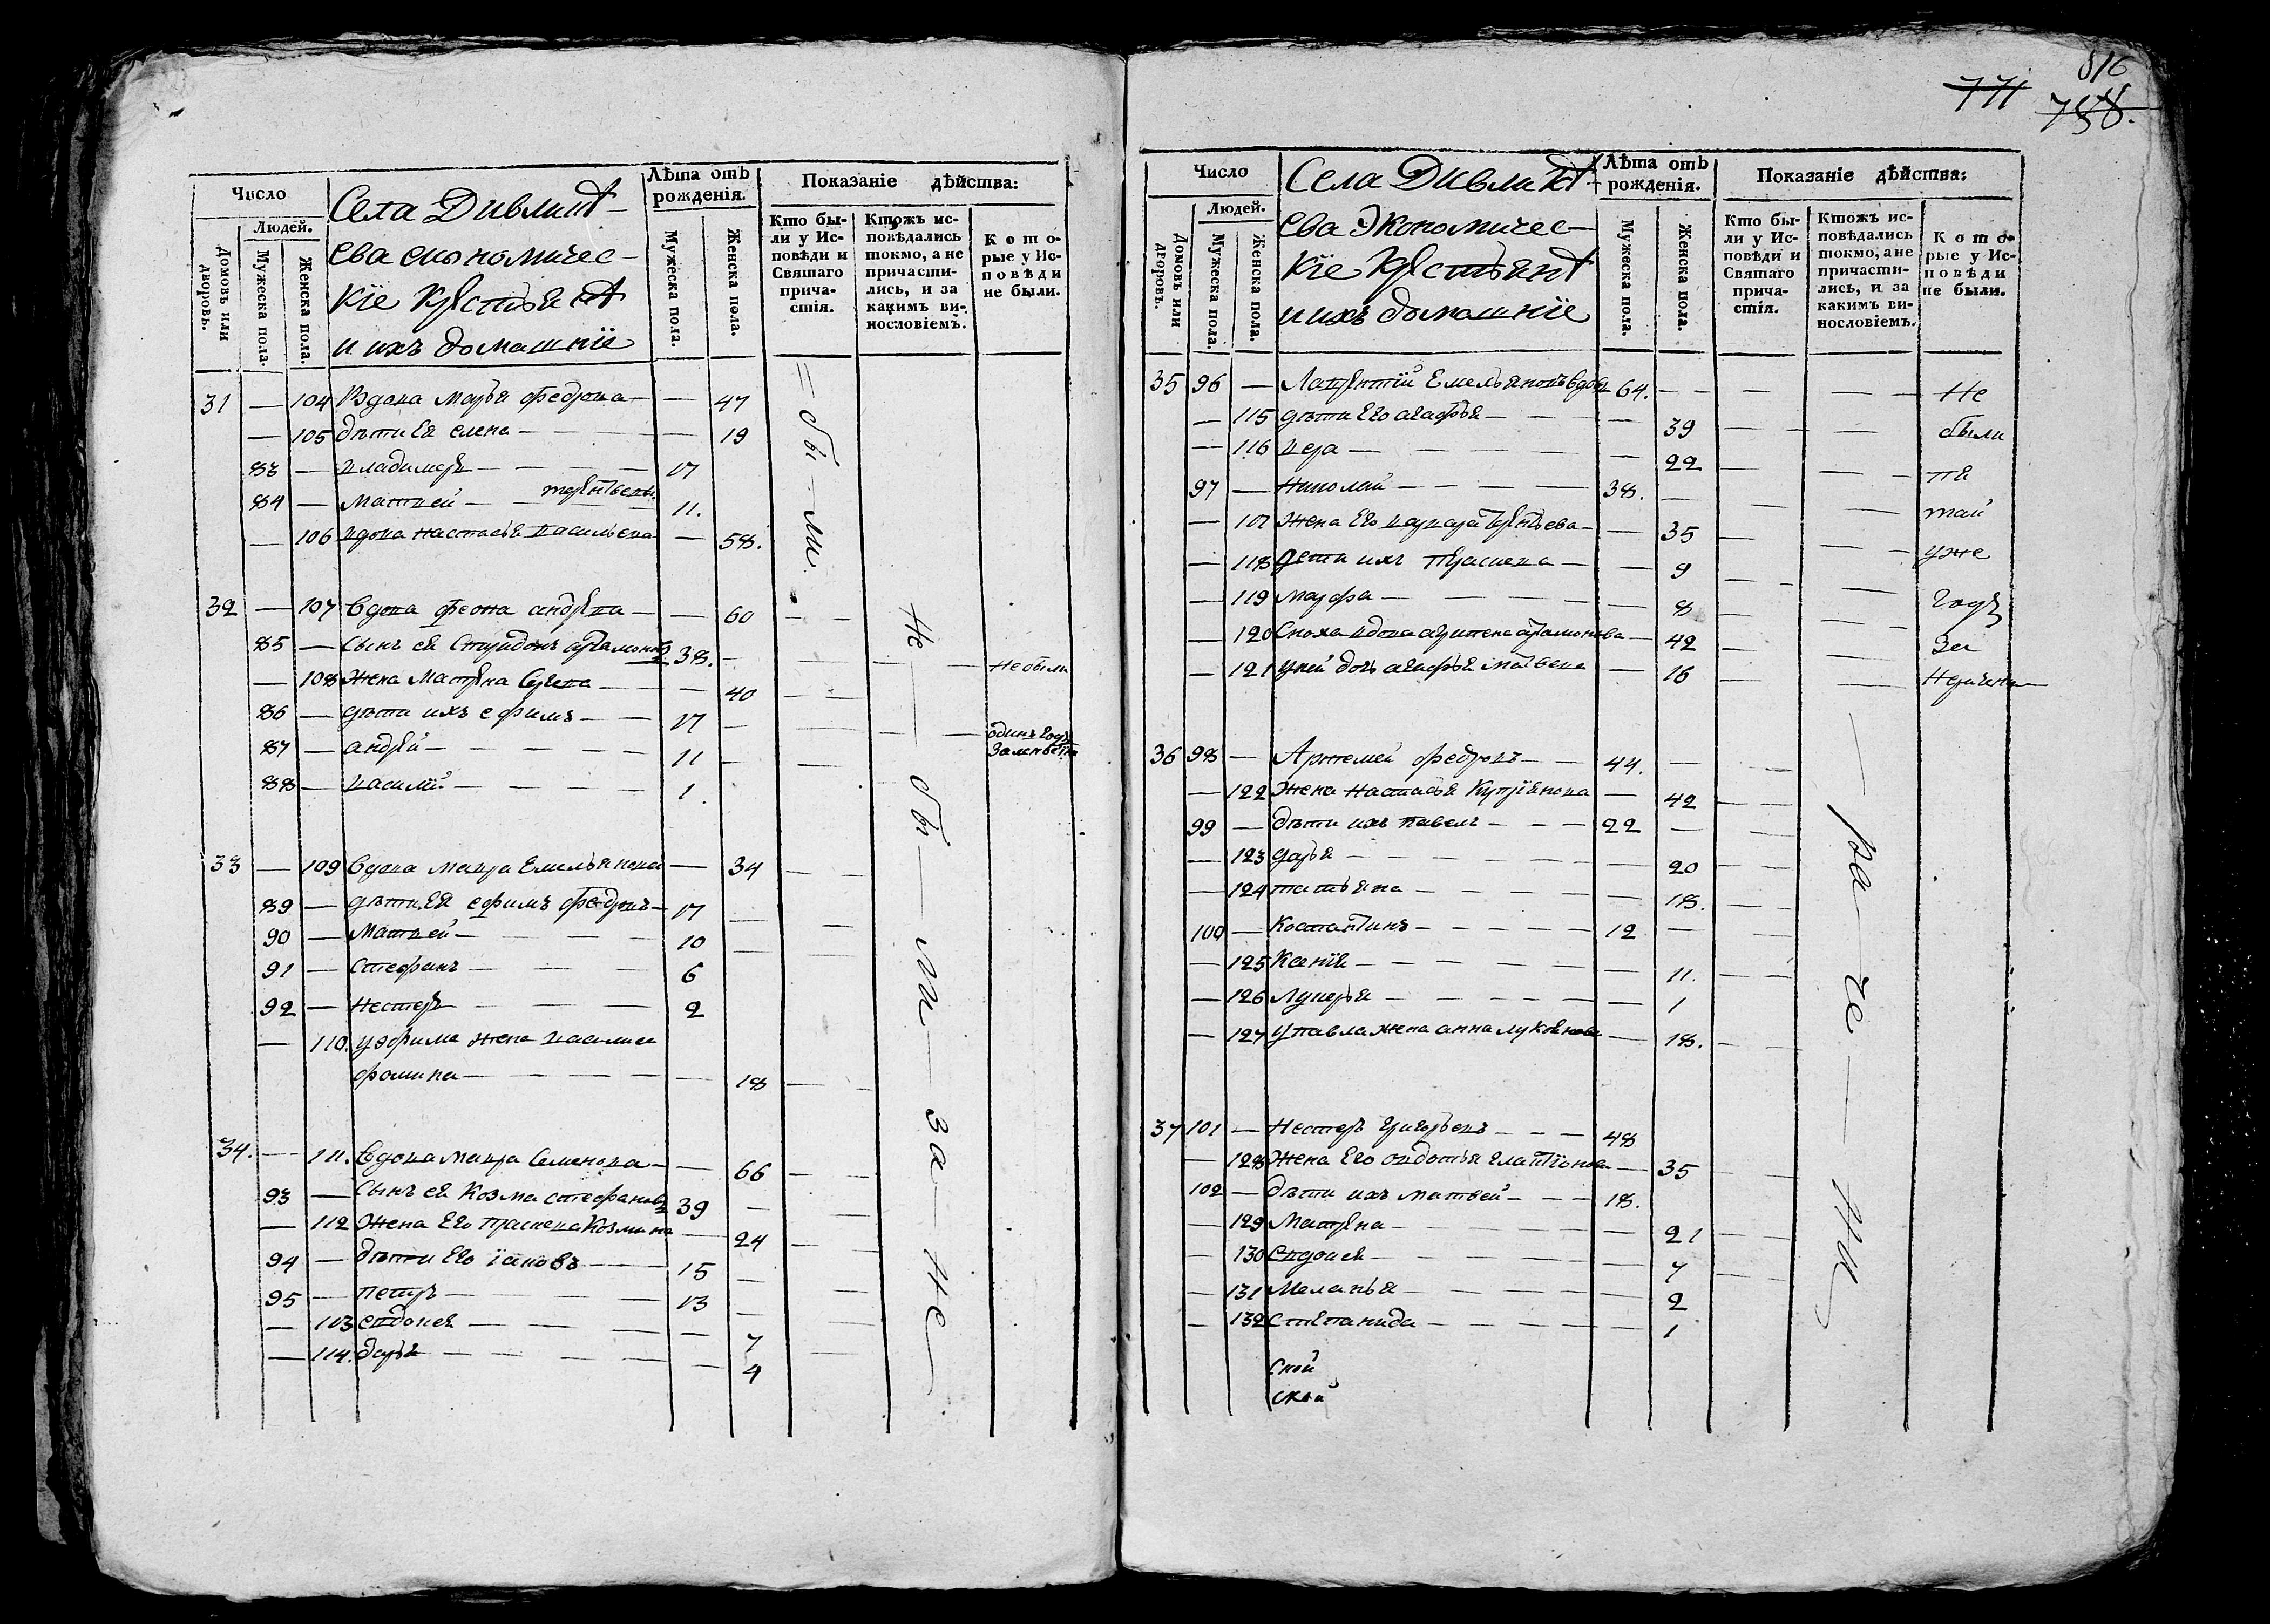 816
771
758.
Число
Людей.
Домовъ или дворовъ.
Мужеска пола.
Женска пола.
Села Дивлит
ева економичес-
кїе крестьянѣ
и ихъ домашнїе
Лѣта отъ рожденія.
Мужеска пола.
Женска пола.
Показаніе дѣйства:
Кто бы-
ли у Ис-
повѣди и
Святаго
прича-
стія.
Ктожъ ис-
повѣдались
токмо, а не
причасти-
лись, и за
какимъ ви-
нословіемъ.
Кото-
рые у Ис-
повѣди
не были.
31 — 104 Вдова Марья Федрова — — 47
— 105 дѣти Ея елена — — 19
83 — владимеръ — 17
84 — Матвей — терентьевы 11.
— 106 вдова настасья васильева — 58.
— бы — ли.
32 — 107 Вдова феона андрева — — 60
85 — Сынъ ея Спиридонъ артамоновъ 38. — не были
— 108 Жена Матрена Сергева — — 40
86 — дѣти ихъ ефимъ — 17 — один годъ
87 — андрей — 11 — за леностїю
88 — василий — 1.
33 — 109 Вдова мавра Емельянова — 34
89 — дѣти Ея ефимъ федровъ — 17
90 — Матвей — 10
91 — Стефанъ — 6
92 — Нестеръ — 2
— 110. у эфима жена васлиса
фомина — — 18
34. — 111. Вдова мавра Семенова — — 66
93 — Сынъ ея Козма стефановъ 39 —
— 112 Жена Его праскева Козмина — 24
94 — дѣти Его їаковъ — 15 —
95 — петръ — 13 —
— 113 евдокея — — 7
— 114. дарья — — 4
Не — бы — ли — за — не
Число
Людей.
Домовъ или дворовъ.
Мужеска пола.
Женска пола.
Села Дивлит
ева Экономичес-
кїе крестьянѣ
и ихъ домашнїе
Лѣта отъ рожденія.
Мужеска пола.
Женска пола.
Показаніе дѣйства:
Кто бы-
ли у Ис-
повѣди и
Святаго
прича-
стія.
Ктожъ ис-
повѣдались
токмо, а не
причасти-
лись, и за
какимъ ви-
нословіемъ.
Кото-
рые у Ис-
повѣди
не были.
35 96 — Лаврентїй Емельяновъ вдовъ 64. — Не
— 115 дѣти Его агафья — — 39 — были
— 116 вера — — 22 — пя
97 — Николай — 38. — тай
— 117 жена Его варвара терентьева — — 35 — уже
— 118 дети ихъ Праскева — — 9
— 119 марфа — — 8 — годъ
— 120 Сноха вдова агрипена артамонова — 42 — за
— 121 у ней дочь агафья матвева — 16 —
36 98 — Артемей федровъ — 44. —
— 122 Жена настасья Купрїянова — 42
99 — дѣти ихъ павелъ — 22 —
— 123 дарья — — 20
— 124 татьяна — — 18.
100 — Костантинъ — 12 —
— 125 Ксенїя — — 11.
— 126 Лукерья — — 1
— 127 у павла жена анна лукоянова — 18.
37 101 — Нестеръ григорьевъ — 48
— 128 Жена Его овдотья — 35
102 — дѣти ихъ матвей — 18.
— 129 Матрена — — 21
— 130 Евдокея — — 7
— 131 Меланья — — 2
— 132 степанида — — 1
— ра — че — ни
Ской
Ской